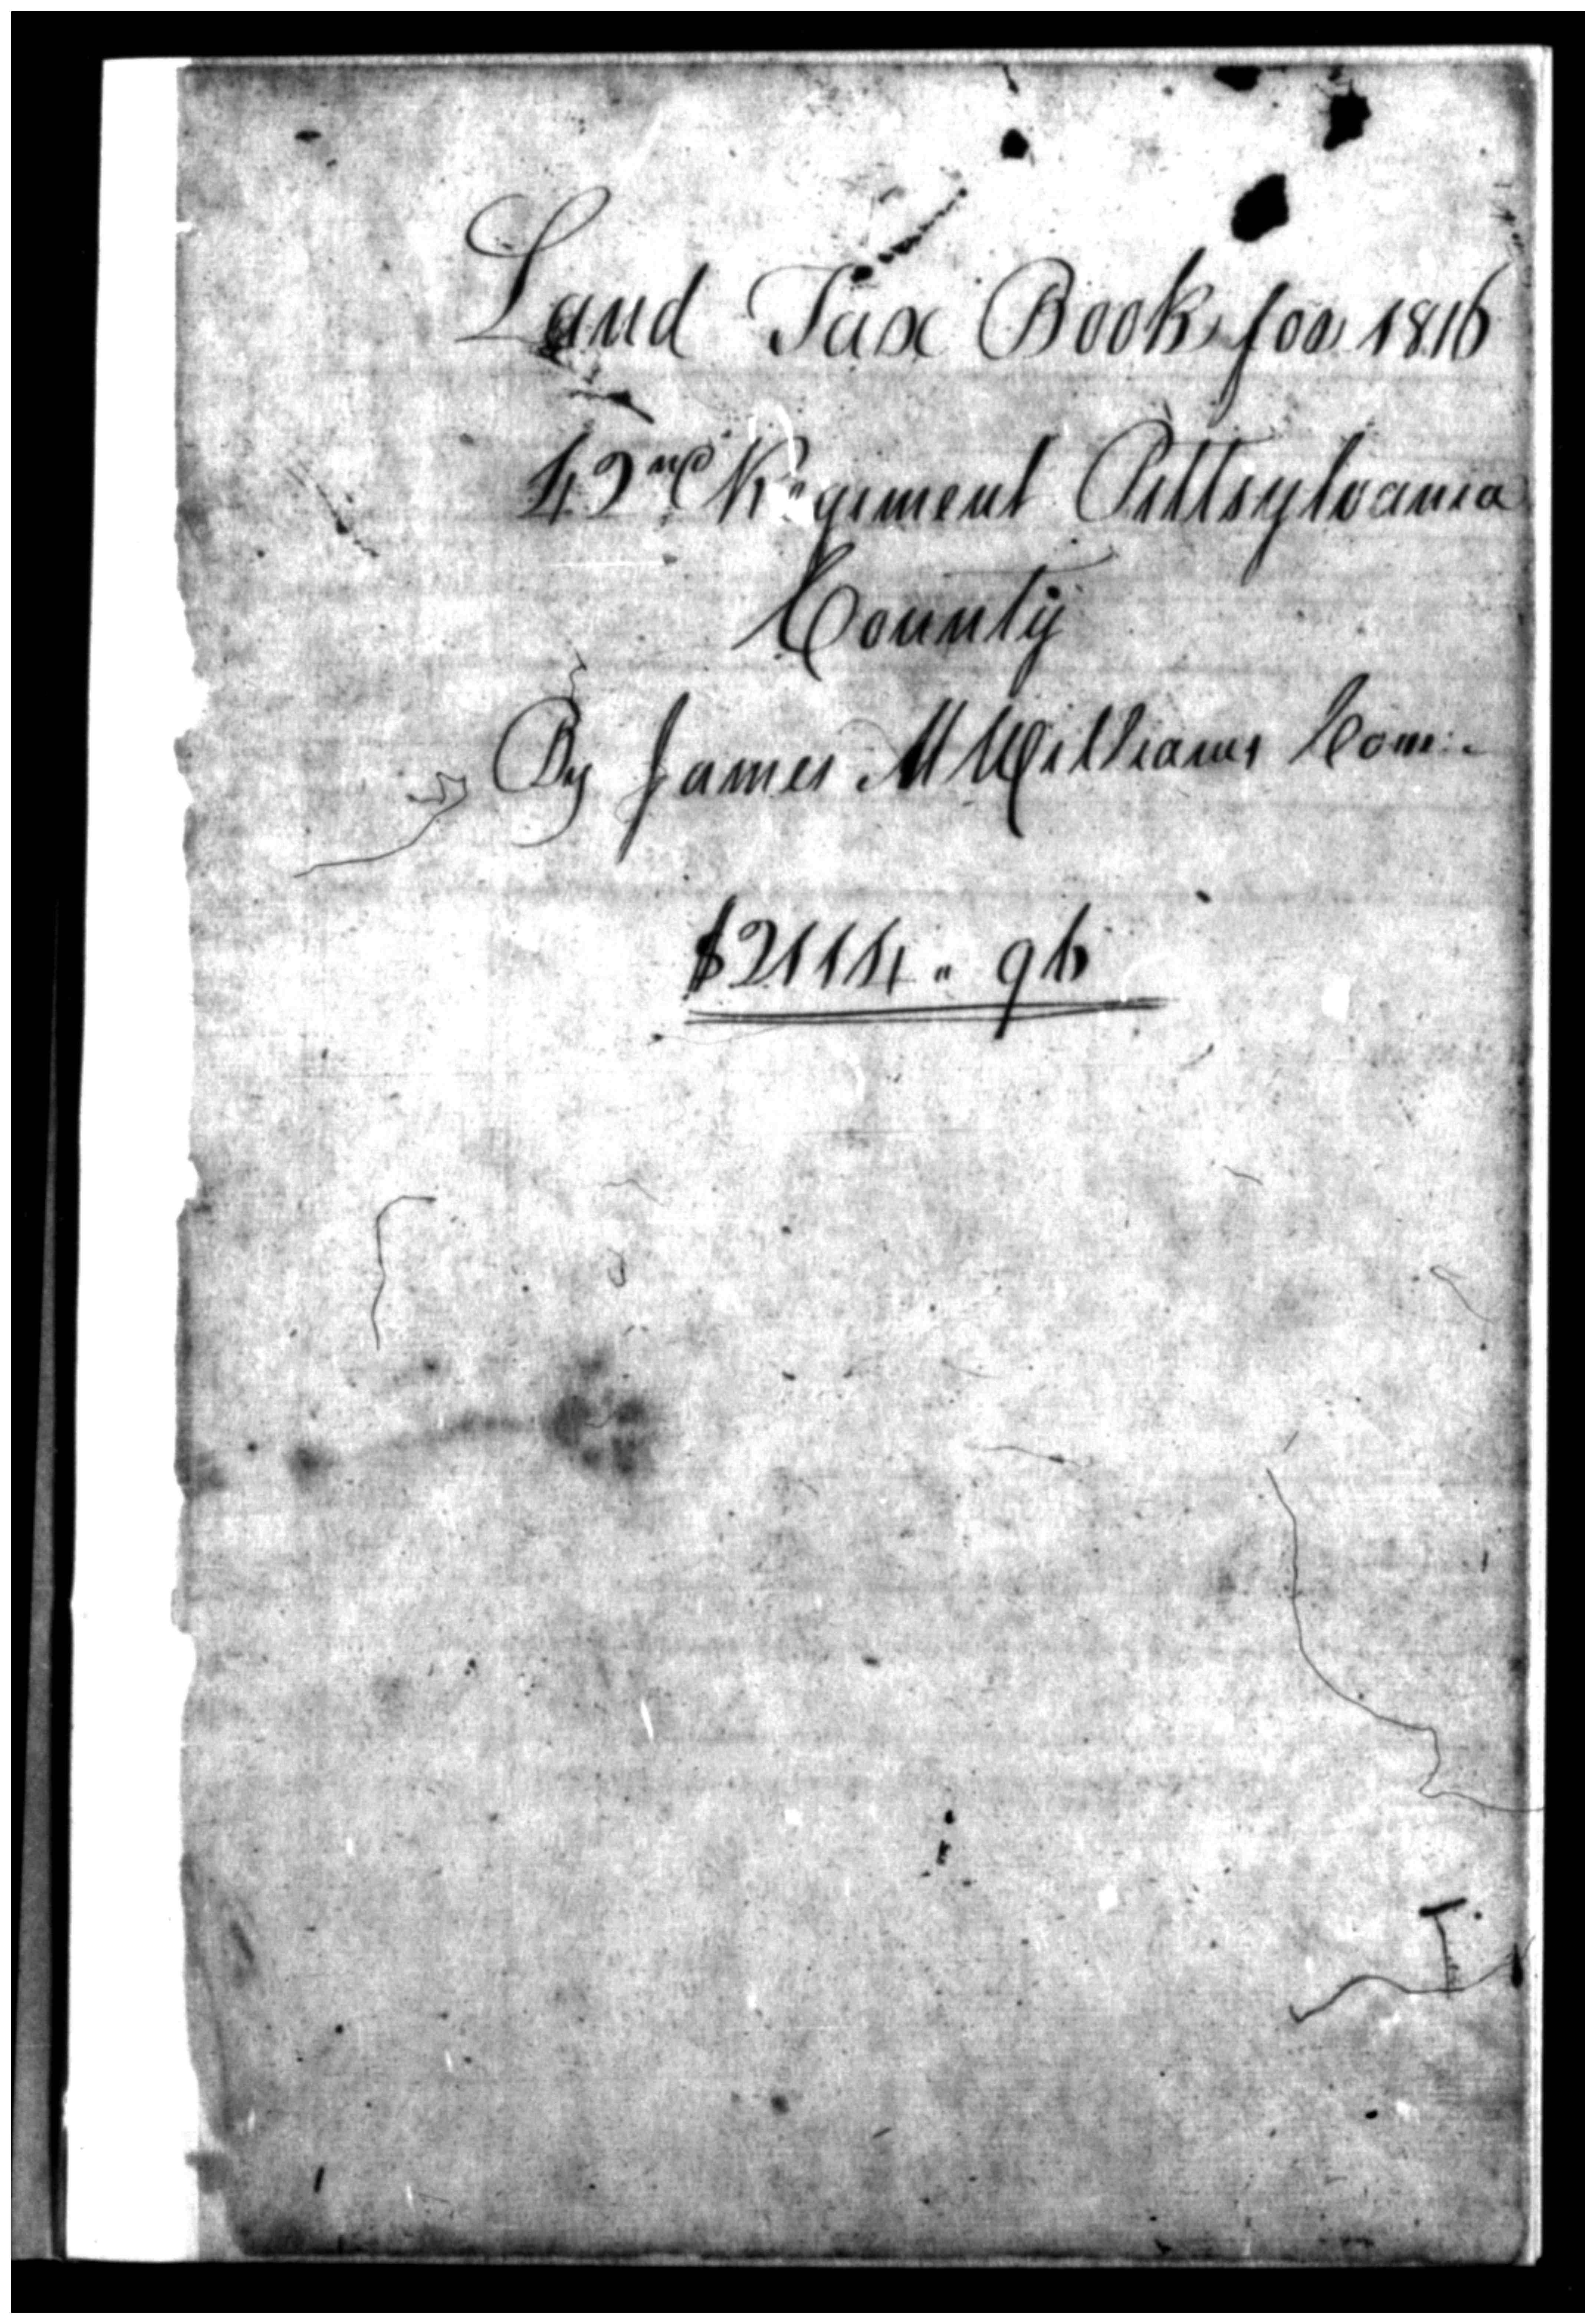 Land Tax Book for 1816
42nd Regiment Pittsylvania
County
By James M Williams Com..
$2114 .. 96
I.